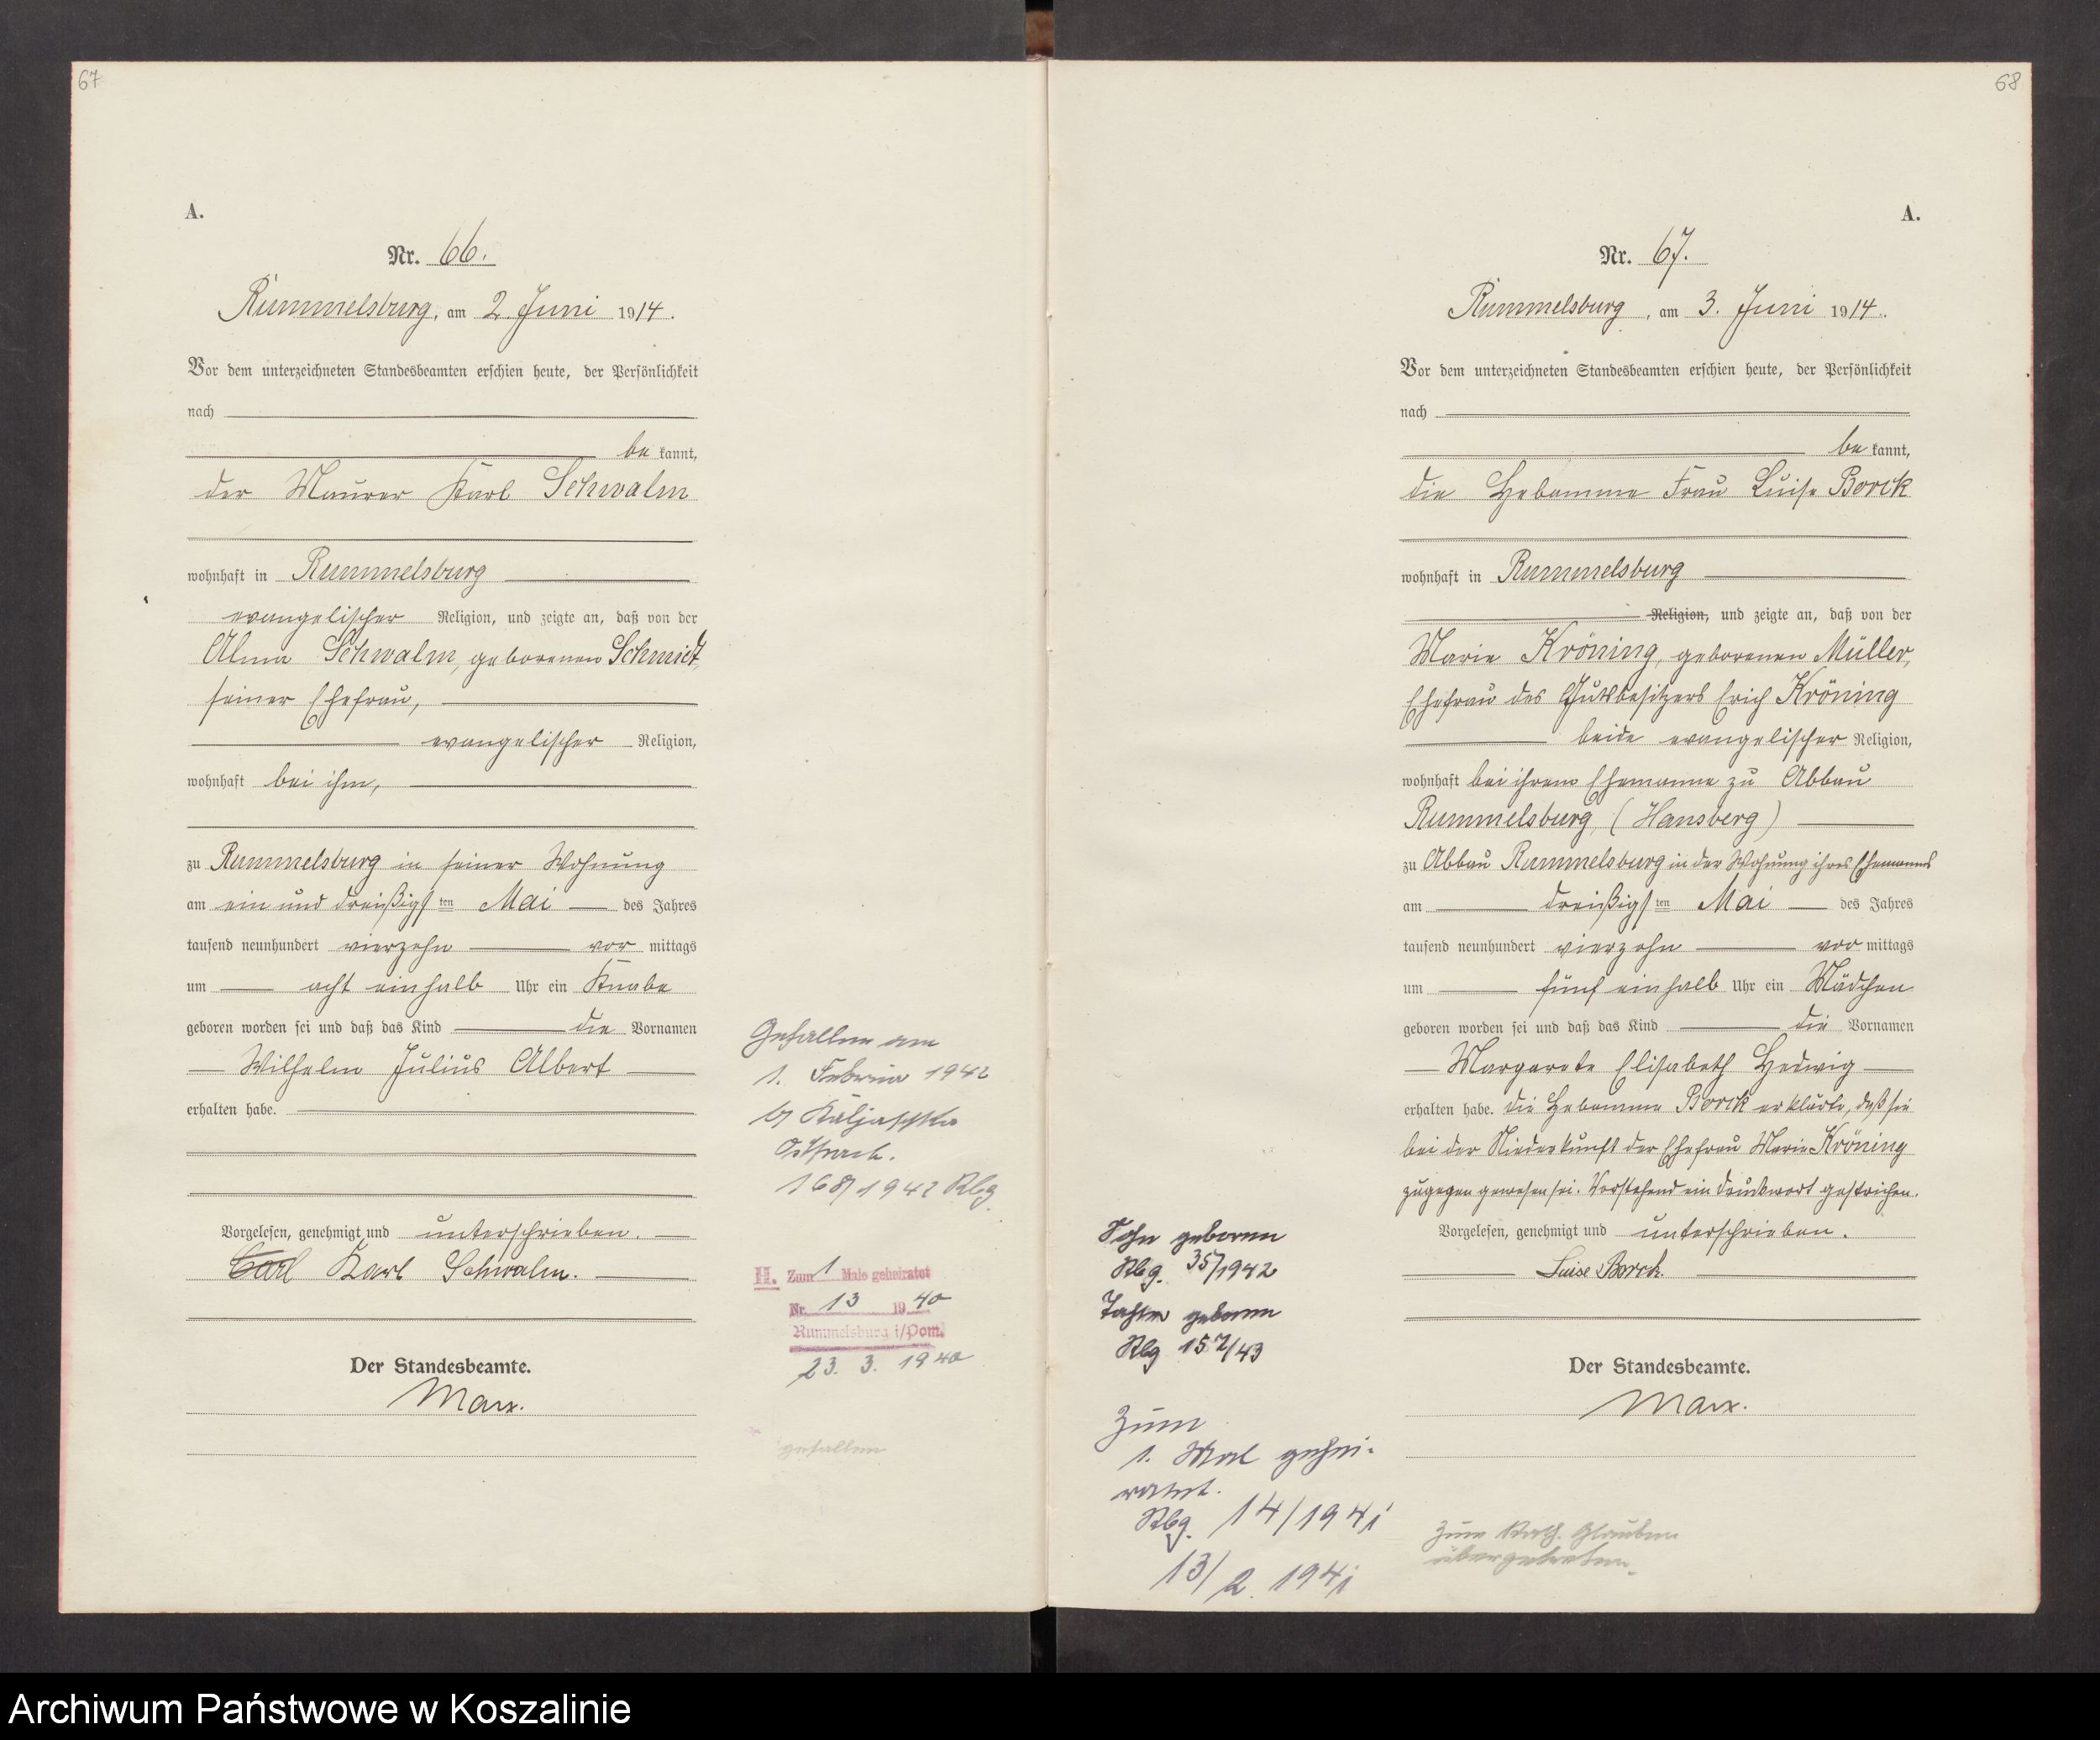 67
A.
Nr. 66.
Rummelsburg, am 2. Juni 1914.
Vor dem unterzeichneten Standesbeamten erschien heute, der Persönlichkeit
nach
be kannt,
der Maurer Karl Schwalm
wohnhaft in Rummelsburg
evangelischer Religion, und zeigte an, daß von der
Alma Schwalm, geborenen Schmidt,
seiner Ehefrau,
evangelischer Religion,
wohnhaft bei ihm,
zu Rummelsburg in seiner Wohnung
am ein und dreißigsten Mai des Jahres
tausend neunhundert vierzehn vor mittags
um acht einhalb Uhr ein Knabe
geboren worden sei und daß das Kind die Vornamen
Wilhelm Julius Albert
erhalten habe.
Vorgelesen, genehmigt und unterschrieben.
Carl Karl Schwalm.
Der Standesbeamte.
Marx.
Gefallen am
1. Februar 1942
Ostfront.
168/1942 Rbg
H. Zum 1 Male geheiratet
Nr. 13 1940
Rummelsburg i/Pom.
23. 3. 1940
gefallen
68
A.
Nr. 67.
Rummelsburg, am 3. Juni 1914.
Vor dem unterzeichneten Standesbeamten erschien heute, der Persönlichkeit
nach
be kannt,
die Hebamme Frau Luise Borck
wohnhaft in Rummelsburg
Religion, und zeigte an, daß von der
Marie Kröning, geborenen Müller,
Ehefrau des Gutsbesitzers Erich Kröning
beide evangelischer Religion,
wohnhaft bei ihrem Ehemanne zu Abbau
Rummelsburg (Hansberg)
zu Abbau Rummelsburg in der Wohnung ihres Ehemannes
am dreißigsten Mai des Jahres
tausend neunhundert vierzehn vor mittags
um fünf einhalb Uhr ein Mädchen
geboren worden sei und daß das Kind die Vornamen
Margarete Elisabeth Hedwig
erhalten habe. Die Hebamme Borck erklärte, daß sie
bei der Niederkunft der Ehefrau Marie Kröning
zugegen gewesen sei. Vorstehend ein Druckwort gestrichen.
Vorgelesen, genehmigt und unterschrieben.
Luise Borck.
Der Standesbeamte.
Marx.
Sohn geboren
Rbg. 35/1942
Tochter geboren
Rbg 157/43
Zum
1. Mal gehei-
ratet.
Rbg. 14/1941
13/2. 1941
Zum kath. Glauben
übergetreten.
Archiwum Państwowe w Koszalinie